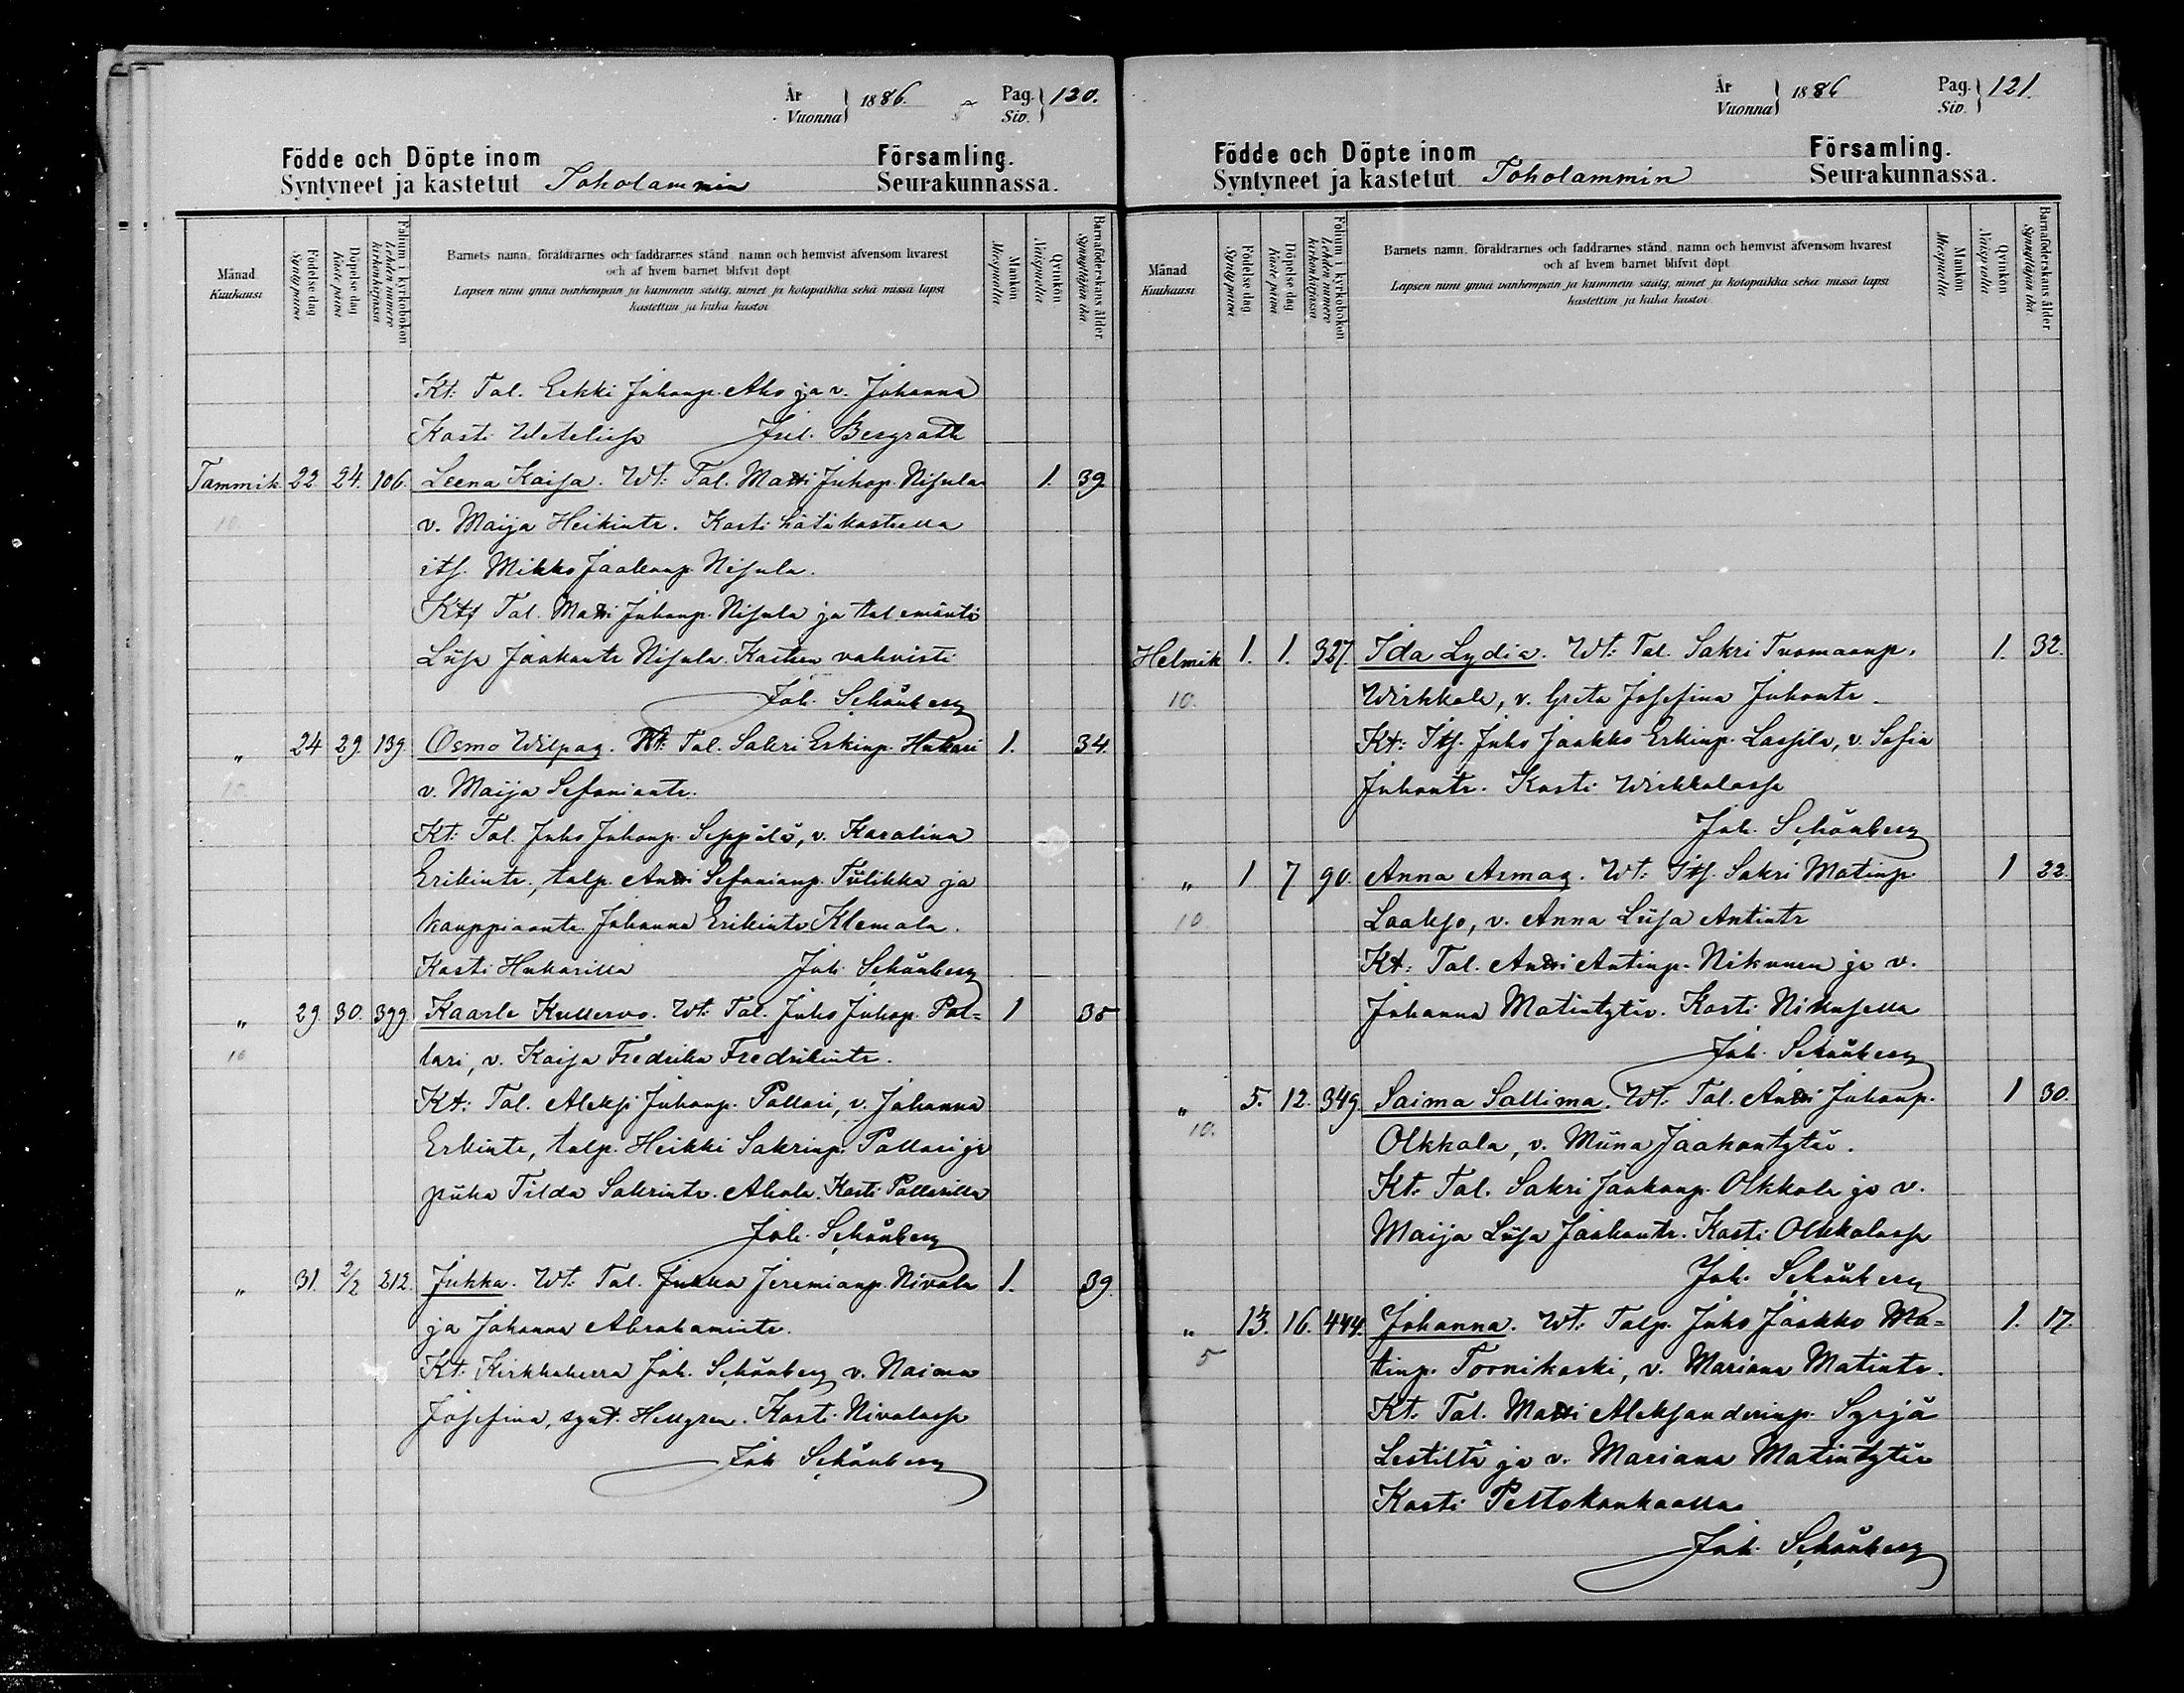 År
Vuonna } 1886.
Pag.
Siv. } 120.
Födde och Döpte inom
Syntyneet ja kastetut Toholammin
Församling.
Seurakunnassa.
Månad
Kuukausi
Födelse dag
Synty päivä
Döpelse dag
Kaste päivä
Folium i kyrkoboken
Lehden numero kirkonkirjassa
Barnets namn, föräldrarnes och faddrarnes stånd, namn och hemvist äfvensom hvarest
och af hvem barnet blifvit döpt
Lapsen nimi ynnä vanhempain ja kummein sääty, nimet ja kotopaikka sekä missä lapsi
kastettiin ja kuka kastoi
Mankön
Miespuolia
Qvinkön
Naispuolia
Barnaföderskans ålder
Synnyttäjän ikä
Kt: Tal. Erkki Juhonp. Aho ja v. Johanna
Kasti Vetelissä Jul. Bergroth
Tammik. 22. 24. 106. Leena Kaisa. Wt: Tal. Matti Juhop. Nisula 1. 39.
10. v. Maija Heikintr. Kasti hätäkasteella
its. Mikko Jaakonp. Nisula.
Kt: Tal. Matti Juhonp. Nisula ja tal. emäntä
Liisa Jaakontr. Nisula. Kasteen vahvisti
Joh. Schönberg
" 24 29. 139. Osmo Wilpas. Wt: Tal. Sakri Erkinp. Hukari 1. 34.
10. v. Maija Sefaniantr.
Kt: Tal. Juho Juhonp. Seppälä, v. Karolina
Erikintr., talp. Antti Sefanianp. Tiilikka ja
kauppiaantr. Johanna Erikintr. Klemola.
Kasti Hukarilla Joh. Schönberg
" 29. 30. 399. Kaarle Kullervo. Wt: Tal. Juho Juhop. Pol= 1 35
10 lari, v. Kaisa Fredrika Fredrikintr.
Kt: Tal. Aleksi Juhonp. Pollari, v. Johanna
Erkintr., talp. Heikki Sakrinp. Pollari ja
piika Tilda Sakrintr. Ahola. Kasti Pollarilla
Joh. Schönberg
" 31. 2/2 212. Jukka. Wt: Tal. Jukka Jeremianp. Nivala 1. 39.
ja Johanna Abrahamintr.
Kt: Kirkkoherra Joh. Schönberg v. Naima
Josefina, synt. Hellgren. Kasti Nivalassa
Joh. Schönberg
År
Vuonna } 1886
Pag.
Siv. } 121.
Födde och Döpte inom
Syntyneet ja kastetut Toholammin
Församling.
Seurakunnassa.
Månad
Kuukausi
Födelse dag
Synty päivä
Döpelse dag
Kaste päivä
Folium i kyrkoboken
Lehden numero kirkonkirjassa
Barnets namn, föräldrarnes och faddrarnes stånd, namn och hemvist äfvensom hvarest
och af hvem barnet blifvit döpt
Lapsen nimi ynnä vanhempain ja kummein sääty, nimet ja kotopaikka sekä missä lapsi
kastettiin ja kuka kastoi
Mankön
Miespuolia
Qvinkön
Naispuolia
Barnaföderskans ålder
Synnyttäjän ikä
Helmik 1. 1. 327. Ida Lydia. Wt: Tal. Sakri Tuomaanp. 1. 32.
10. Wirkkala, v. Greta Josefina Juhontr
Kt: Its. Juho Jaakko Erkinp. Lassila, v. Sofia
Juhontr. Kasti Wirkkalassa
Joh. Schönberg
" 1 7 90. Anna Armas. Wt: Its. Sakri Matinp. 1 22.
10. Laakso, v. Anna Liisa Antintr
Kt: Tal. Antti Antinp. Nikunen ja v.
Johanna Matintytär. Kasti Nikusella
Joh. Schönberg
" 5. 12. 349. Saima Sallima. Wt: Tal. Antti Juhonp. 1 30.
10. Olkkola, v. Miina Jaakontytär.
Kt: Tal. Sakri Jaakonp. Olkkola ja v.
Maija Liisa Jaakontr. Kasti Olkkolassa
Joh. Schönberg
" 13. 16. 444. Johanna. Wt: Talp. Juho Jaakko Ma= 1. 17.
5 tinp. Toornikoski, v. Mariana Matintr.
Kt: Tal. Matti Aleksanderinp. Syrjä
Lestiltä ja v. Mariana Matintytär
Kasti Peltokankaalla
Joh. Schönberg